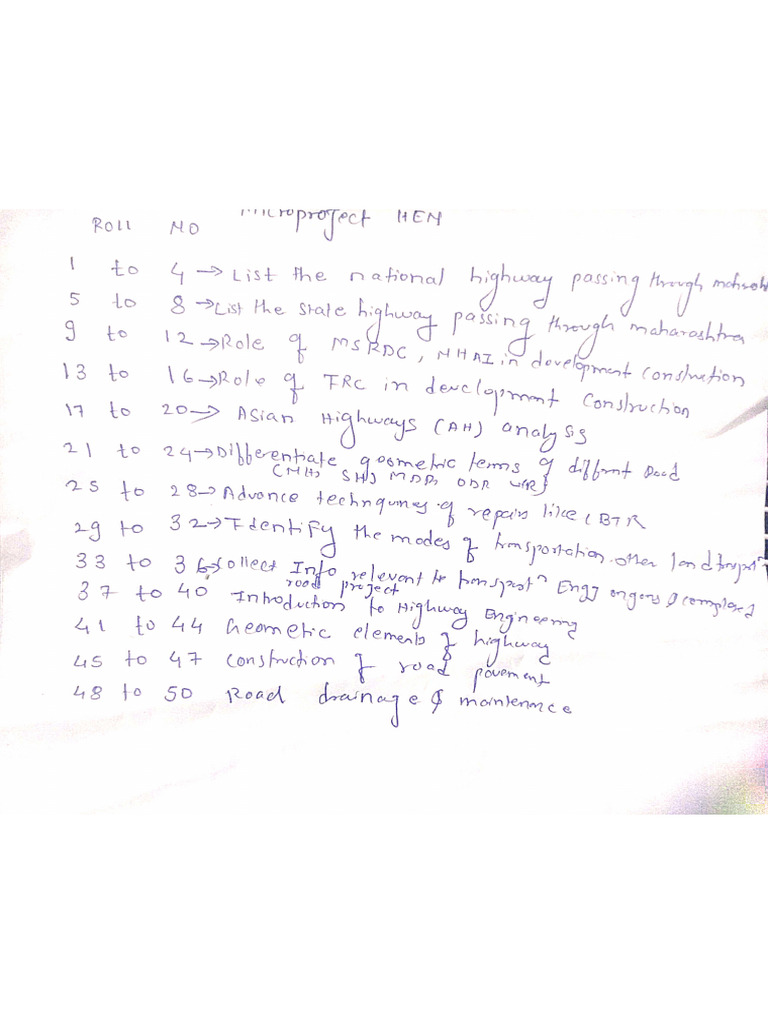 Microproject HEN
ROll NO
1 to 4 → List the national highway passing through
5 to 8 → List the state highway passing through maharashtra
9 to 12 → Role of MSRDC, NHAI in development construction
13 to 16 → Role of IRC in development Construction
17 to 20 → Asian Highways (AH) analysis
21 to 24 → Differentiate geometric terms of diffrnt Road
(NH, SH, MDR, ODR VR)
25 to 28 → Advance of repairs like CBTR
29 to 32 → Identify the modes of transportation other land
33 to 36 → Collect Info relevant to Engg & completed
road project
37 to 40 Introduction to Highway Engineering
41 to 44 Geometic elements of highway
45 to 47 Construction of road pavement
48 to 50 Road drainage &